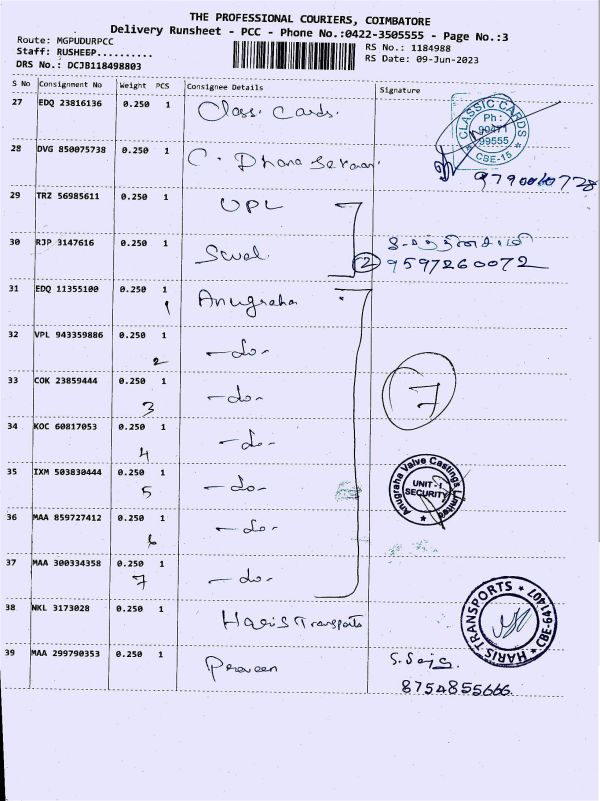 THE PROFESSIONAL COURIERS, COIMBATORE
Delivery Runsheet - PCC - Phone No.:0422-3505555 - Page No.:3
Route: MGPUDURPCC
Staff: RUSHEEP..........
DRS No.: DCJB118498803
RS No.: 1184988
RS Date: 09-Jun-2023
S No Consignment No Weight PCS Consignee Details Signature
27 EDQ 23816136 0.250 1 Class. Cards.
CLASSIC CARDS
Ph :
99555
CBE-15
28 DVG 850075738 0.250 1 C. Dhana Sekaran.
9790060728
29 TRZ 56985611 0.250 1 UPL
30 RJP 3147616 0.250 1
2 9597260072
31 EDQ 11355100 0.250 1 Anugraha
1
32 VPL 943359886 0.250 -do-
2
33 COK 23859444 0.250 -do-
3
7
34 KOC 60817053 0.250 -do-
4
35 IXM 503830444 0.250 -do-
5
Anugraha Valve Castings Limited
UNIT-1
SECURITY
36 MAA 859727412 0.250 -do-
6
37 MAA 300334358 0.250 -do-
7
38 NKL 3173028 0.250 1 Haris Transports
HARIS TRANSPORTS
CBE-641407
39 MAA 299790353 0.250 1 Praveen
8754855666